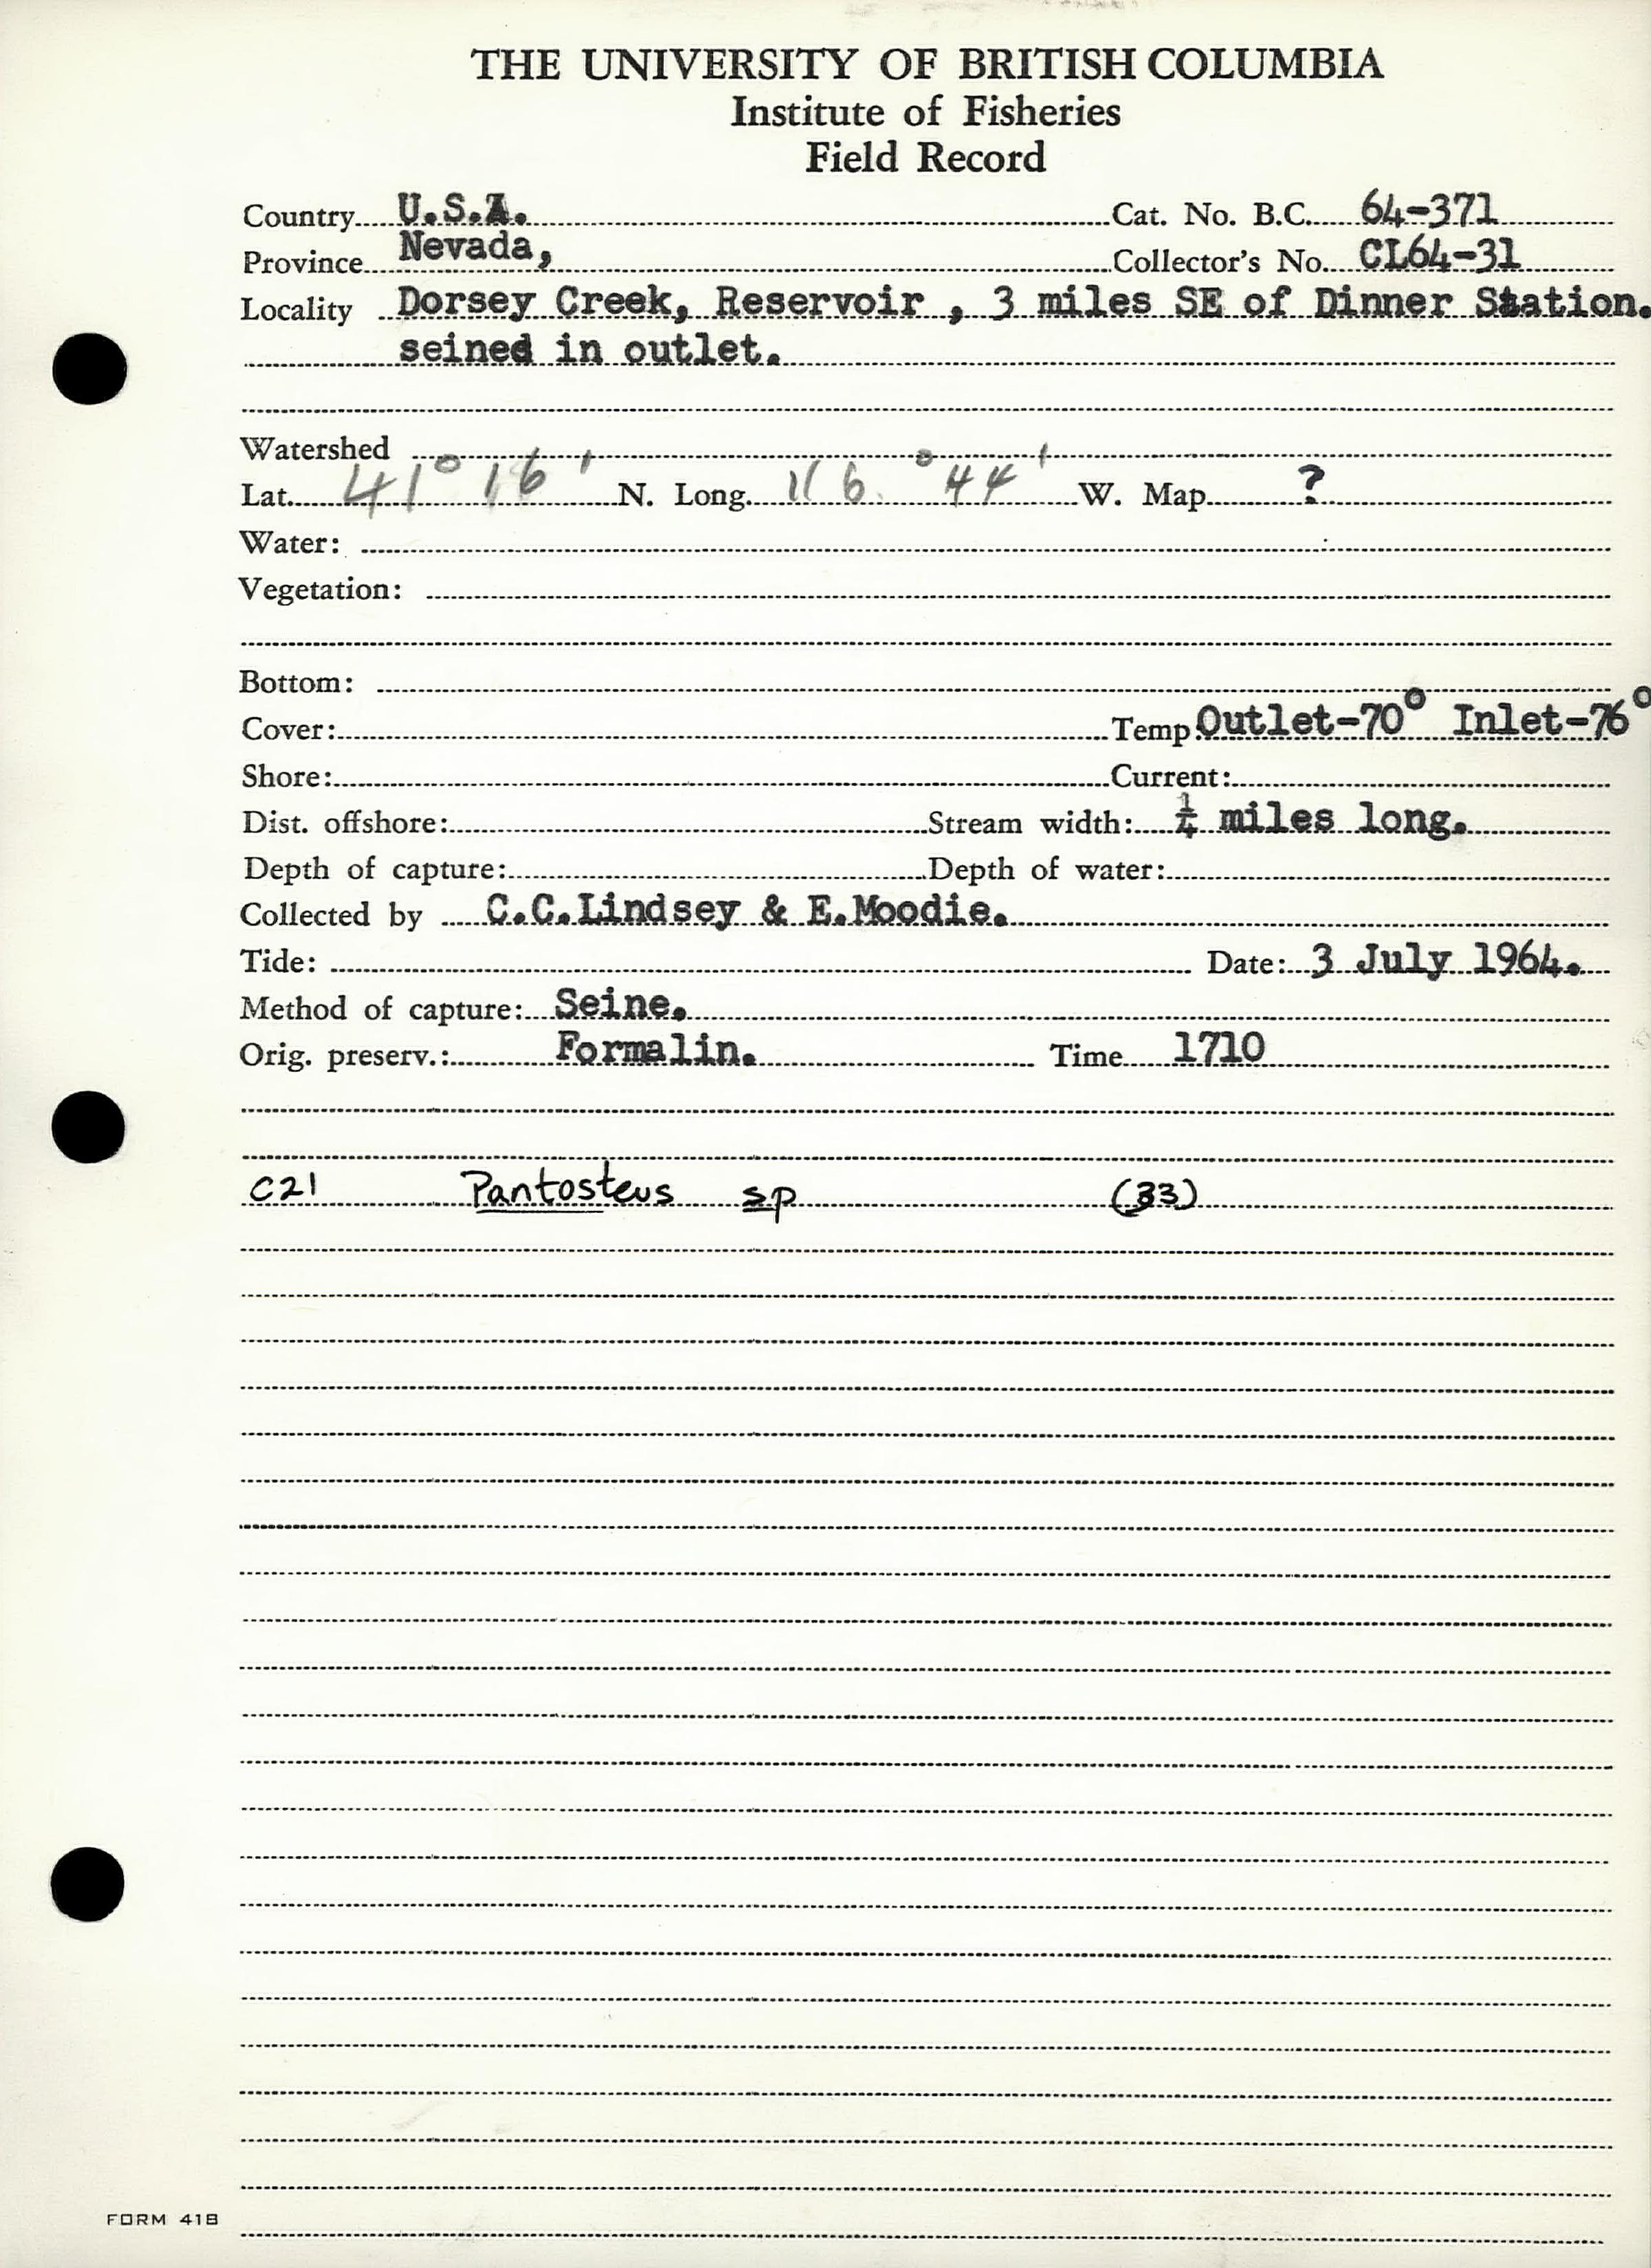 THE UNIVERSITY OF BRITISH COLUMBIA
Institute of Fisheries
Field Record
Country U.S.A. Cat. No. B.C. 64-371
Province Nevada, Collector's No. CL64-31
Locality Dorsey Creek, Reservoir , 3 miles SE of Dinner Station.
seined in outlet.
Watershed
Lat. 41° 16' N. Long. 116.°44' W. Map ?
Water:
Vegetation:
Bottom:
Cover: Temp. Outlet-70° Inlet-76°
Shore: Current:
Dist. offshore: Stream width: ¼ miles long.
Depth of capture: Depth of water:
Collected by C.C.Lindsey & E.Moodie.
Tide: Date: 3 July 1964.
Method of capture: Seine.
Orig. preserv.: Formalin. Time 1710
C21 Pantosteus sp (33)
FORM 418